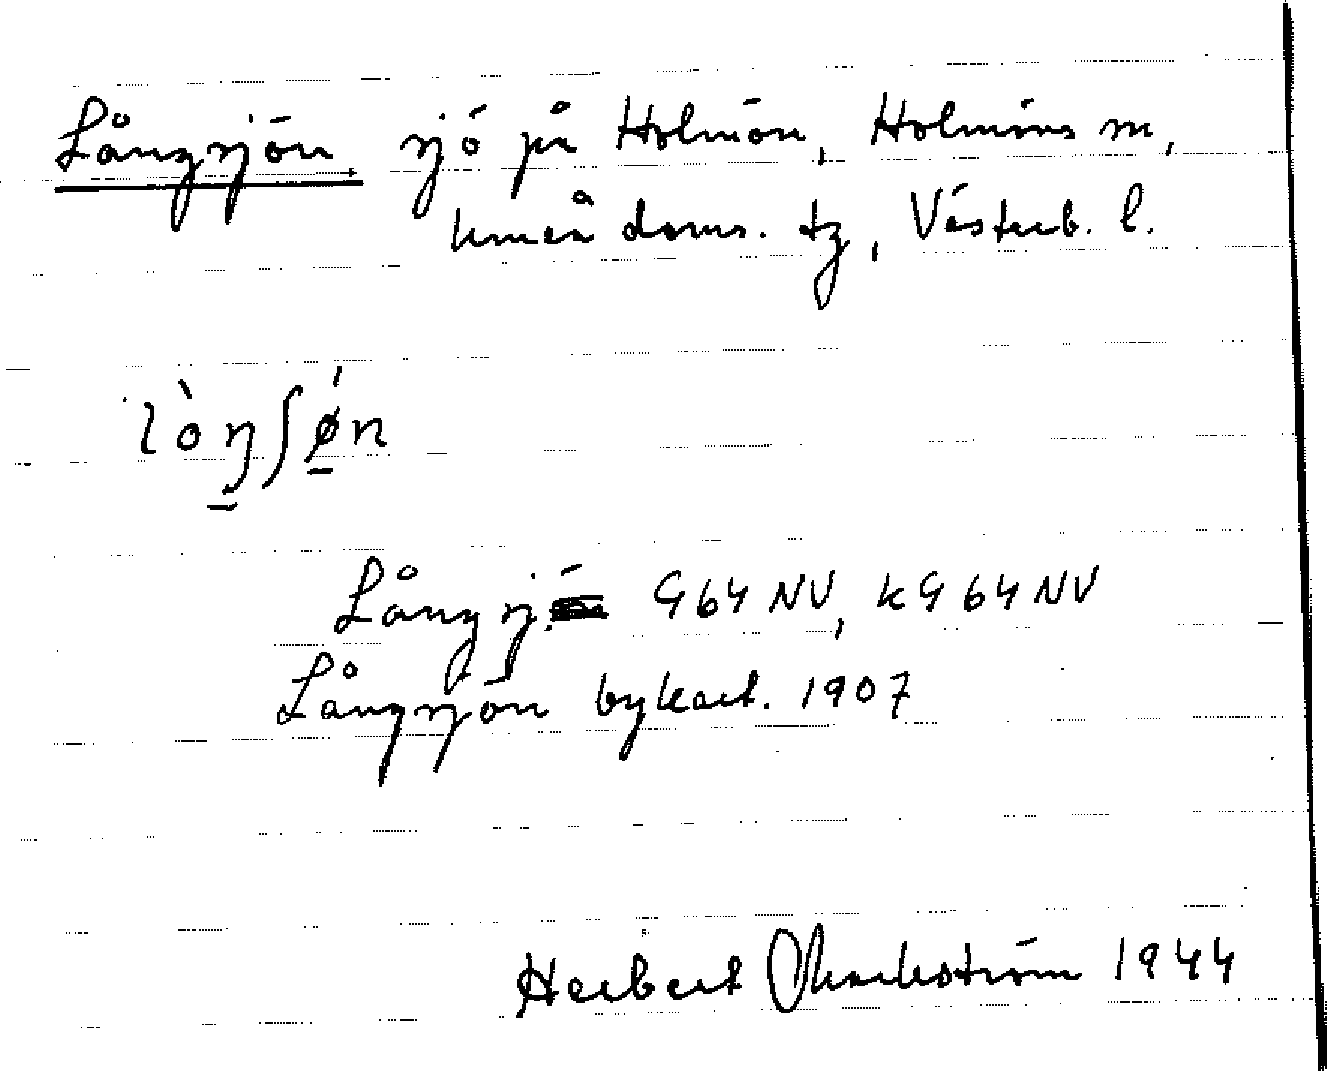 Långsjön sjö på Holmön, Holmöns sn,
Umeå doms. tg, Västerb. l.
lòŋʃǿ̱n
Långsj. G 64 NV, kG 64 NV
Långsjön bykart. 1907
Herbert Markström 1944